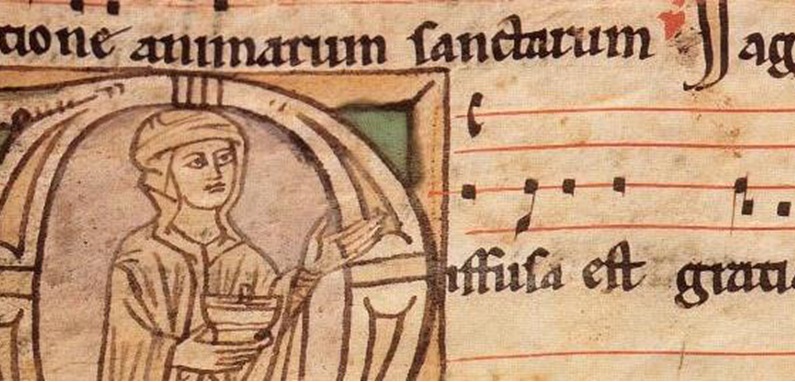 tione animarum sanctarum Jag
iffusa est gratia